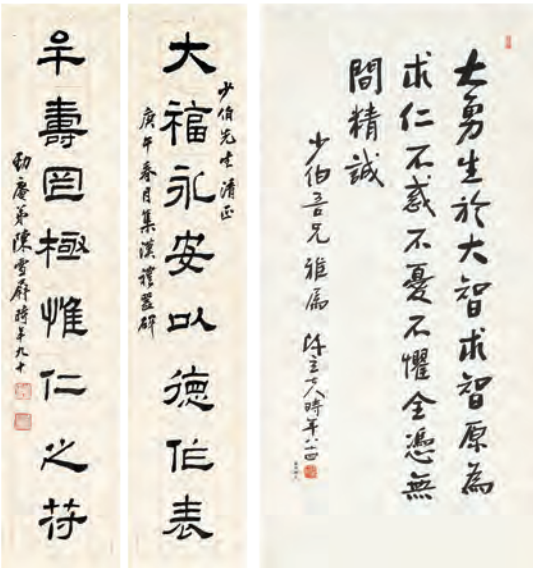 大勇生於大智求智原為
求仁不惑不憂不懼全憑無
間精誠
少伯吾兄雅屬 陳立夫時年八十四
少伯先生清正
大福永安以德作表
庚午春月集漢禮器碑
年壽罔極惟仁之符
勁庵弟陳雪屏時年九十